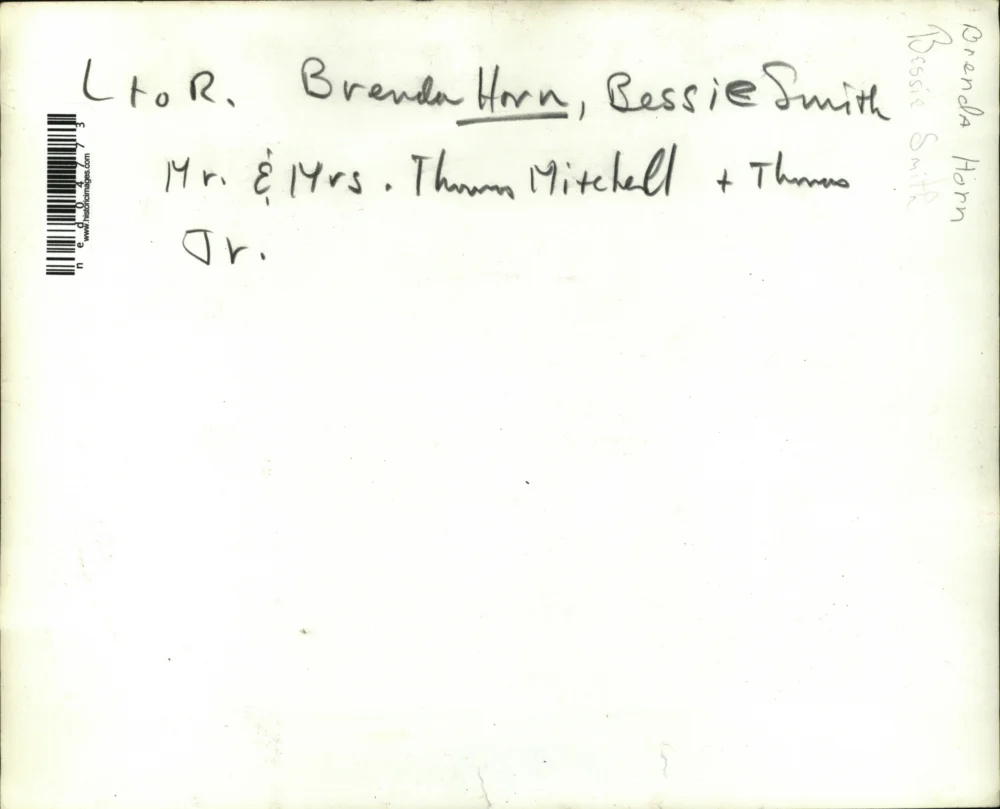 L to R. Brenda Horn, Bessie Smith
Mr. & Mrs. Thomas Mitchell + Thomas
Jr.
Brenda Horn
Bessie Smith
ned04773
www.historicimages.com